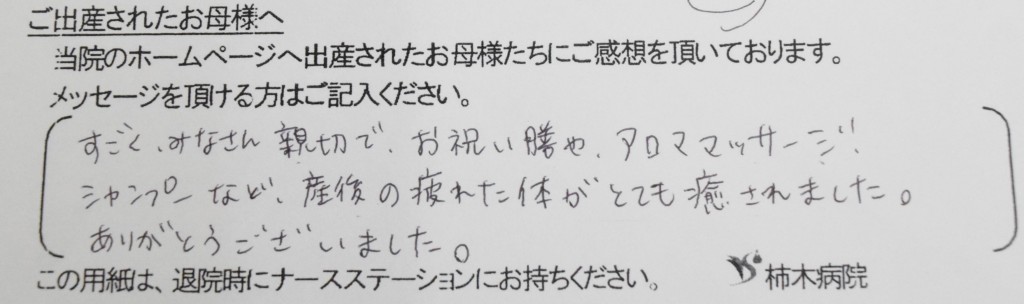 ご出産されたお母様へ
当院のホームページへ出産されたお母様たちにご感想を頂いております。
メッセージを頂ける方はご記入ください。
すごく、みなさん親切で、お祝い膳や、アロママッサージ、
シャンプーなど、産後の疲れた体がとても癒されました。
ありがとうございました。
この用紙は、退院時にナースステーションにお持ちください。 柿木病院